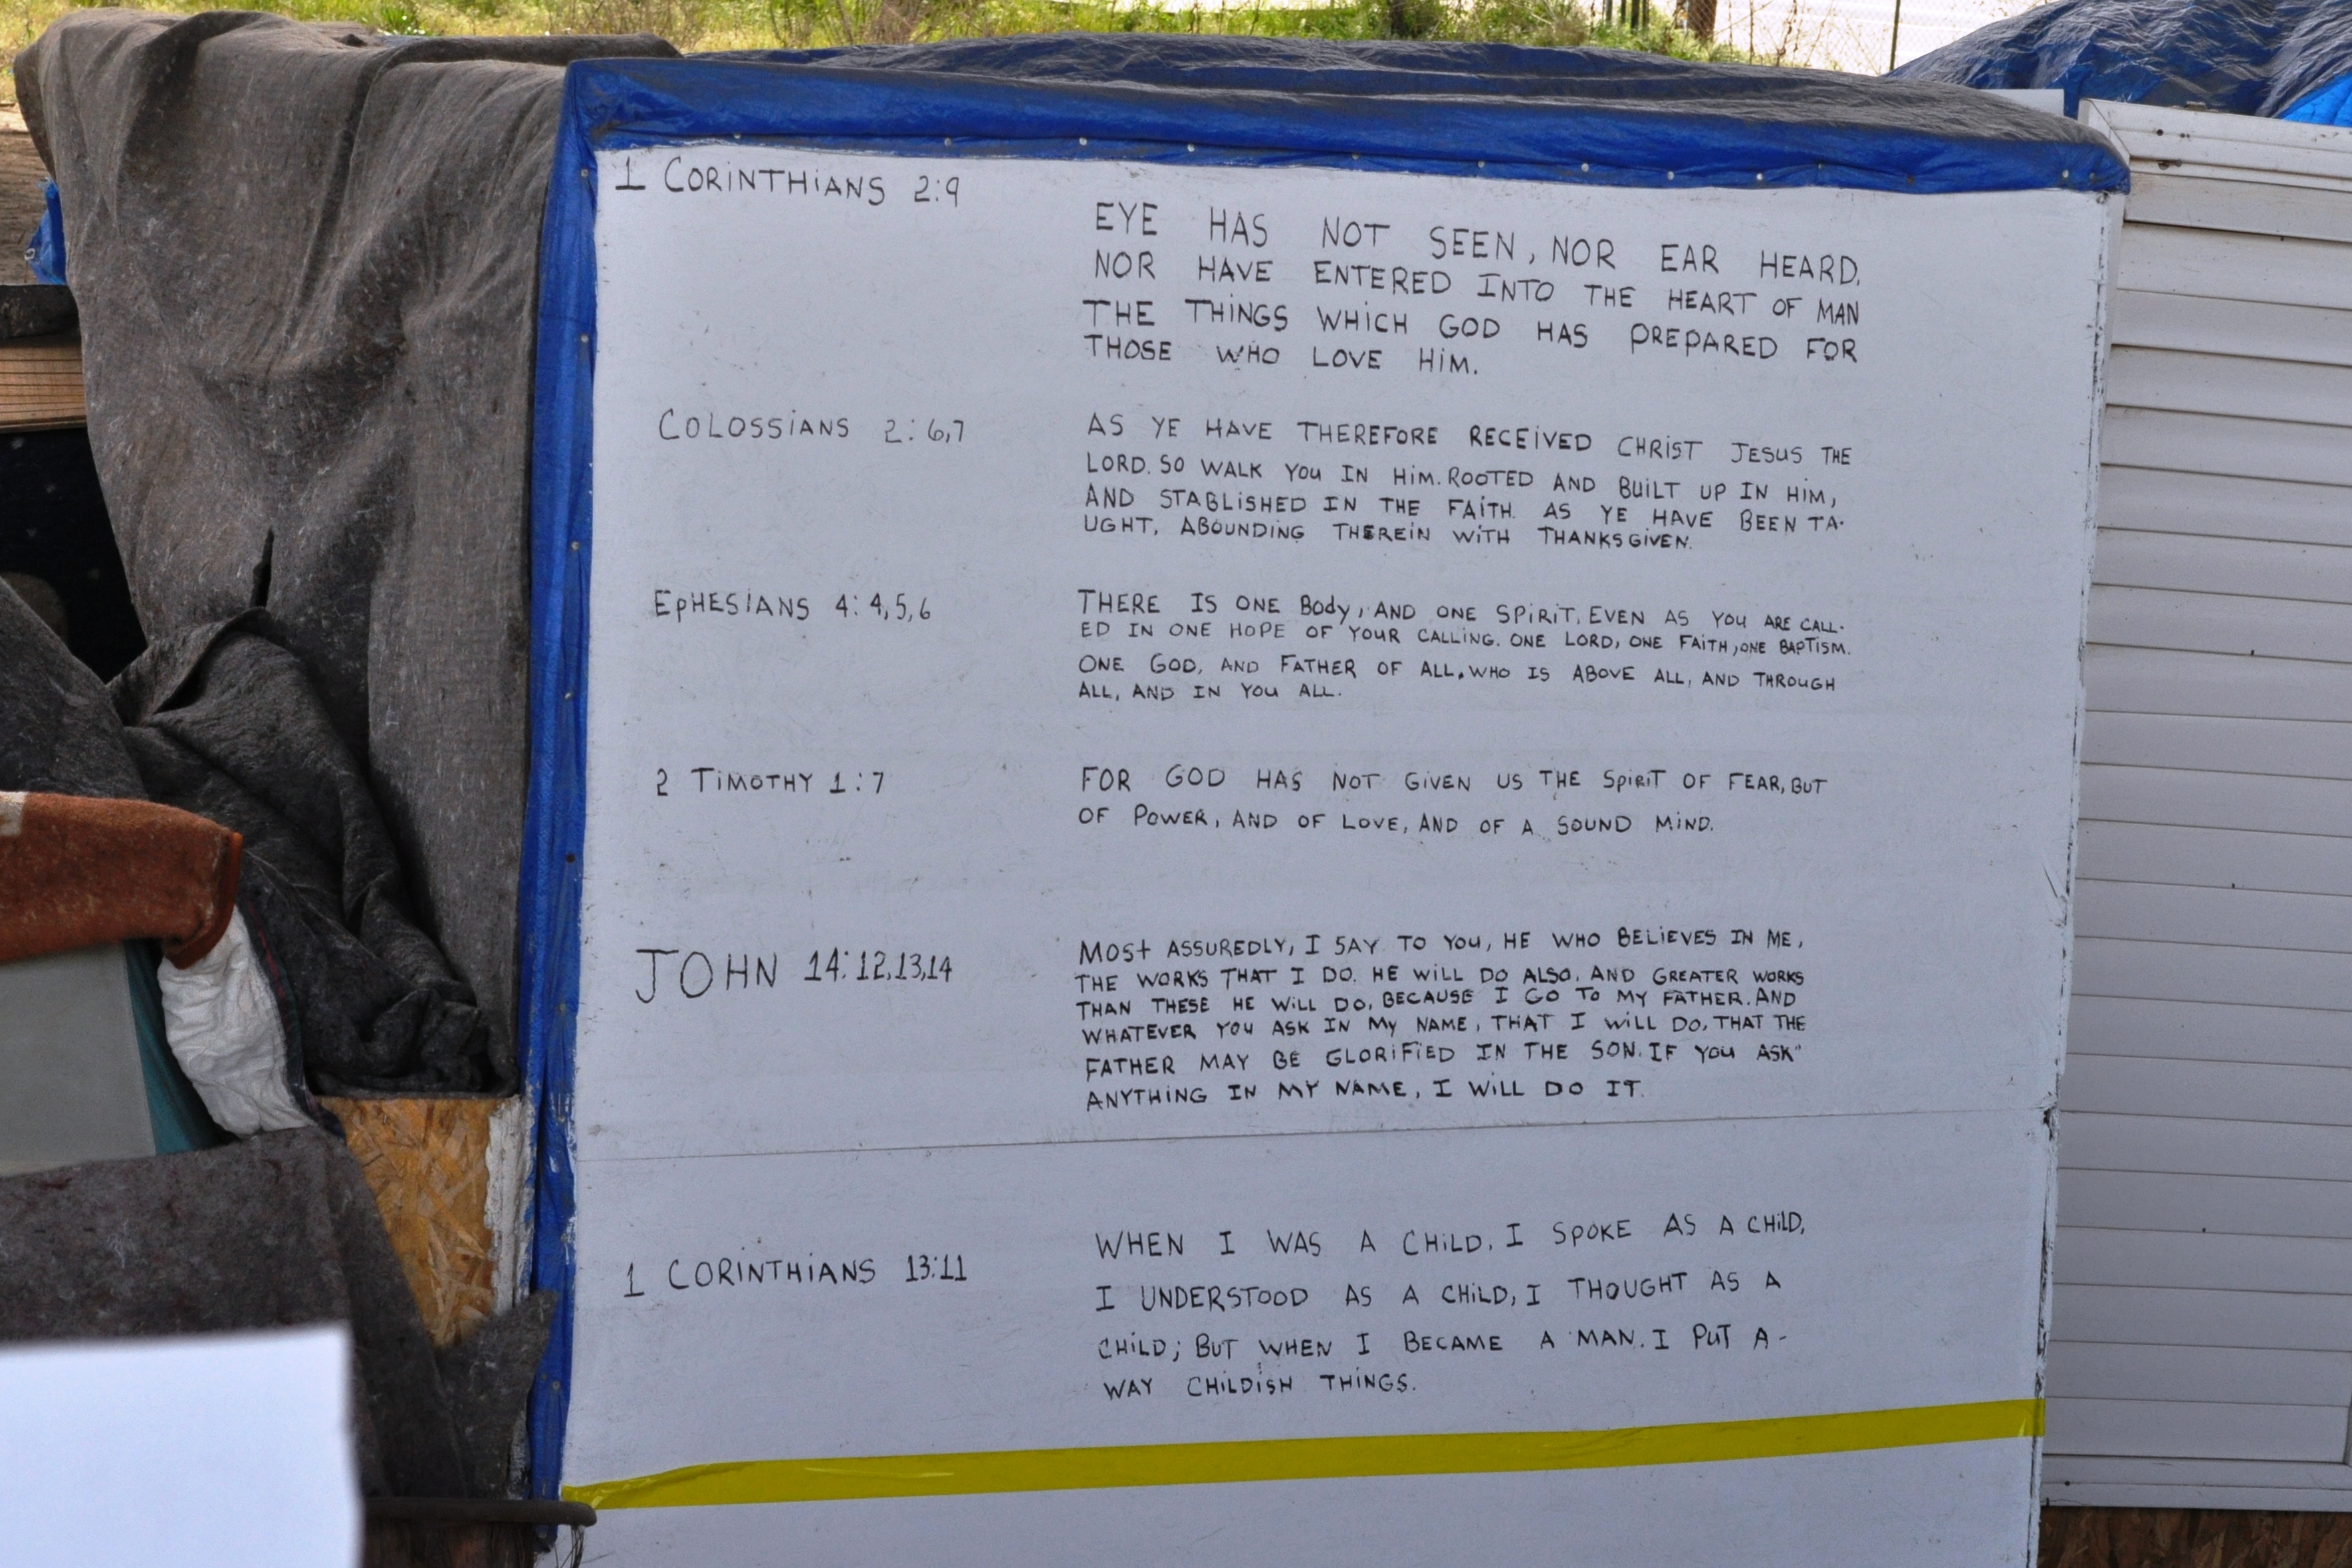 1 CORINTHIANS 2:9
EYE HAS NOT SEEN, NOR EAR HEARD,
NOR HAVE ENTERED INTO THE HEART OF MAN
THE THINGS WHICH GOD HAS PREPARED FOR
THOSE WHO LOVE HIM.
COLOSSIANS 2:6,7
AS YE HAVE THEREFORE RECEIVED CHRIST JESUS THE
LORD. SO WALK YOU IN HIM. ROOTED AND BUILT UP IN HIM,
AND STABLISHED IN THE FAITH. AS YE HAVE BEEN TA-
UGHT, ABOUNDING THEREIN WITH THANKSGIVEN.
EPHESIANS 4:4,5,6
THERE IS ONE BODY, AND ONE SPIRIT, EVEN AS YOU ARE CALL-
ED IN ONE HOPE OF YOUR CALLING. ONE LORD, ONE FAITH, ONE BAPTISM.
ONE GOD, AND FATHER OF ALL. WHO IS ABOVE ALL, AND THROUGH
ALL, AND IN YOU ALL.
2 TIMOTHY 1:7
FOR GOD HAS NOT GIVEN US THE SPIRIT OF FEAR, BUT
OF POWER, AND OF LOVE, AND OF A SOUND MIND.
JOHN 14:12,13,14
MOST ASSUREDLY, I SAY TO YOU, HE WHO BELIEVES IN ME,
THE WORKS THAT I DO. HE WILL DO ALSO, AND GREATER WORKS
THAN THESE HE WILL DO, BECAUSE I GO TO MY FATHER. AND
WHATEVER YOU ASK IN MY NAME, THAT I WILL DO, THAT THE
FATHER MAY BE GLORIFIED IN THE SON. IF YOU ASK
ANYTHING IN MY NAME, I WILL DO IT.
1 CORINTHIANS 13:11
WHEN I WAS A CHILD, I SPOKE AS A CHILD,
I UNDERSTOOD AS A CHILD, I THOUGHT AS A
CHILD; BUT WHEN I BECAME A MAN. I PUT A-
WAY CHILDISH THINGS.